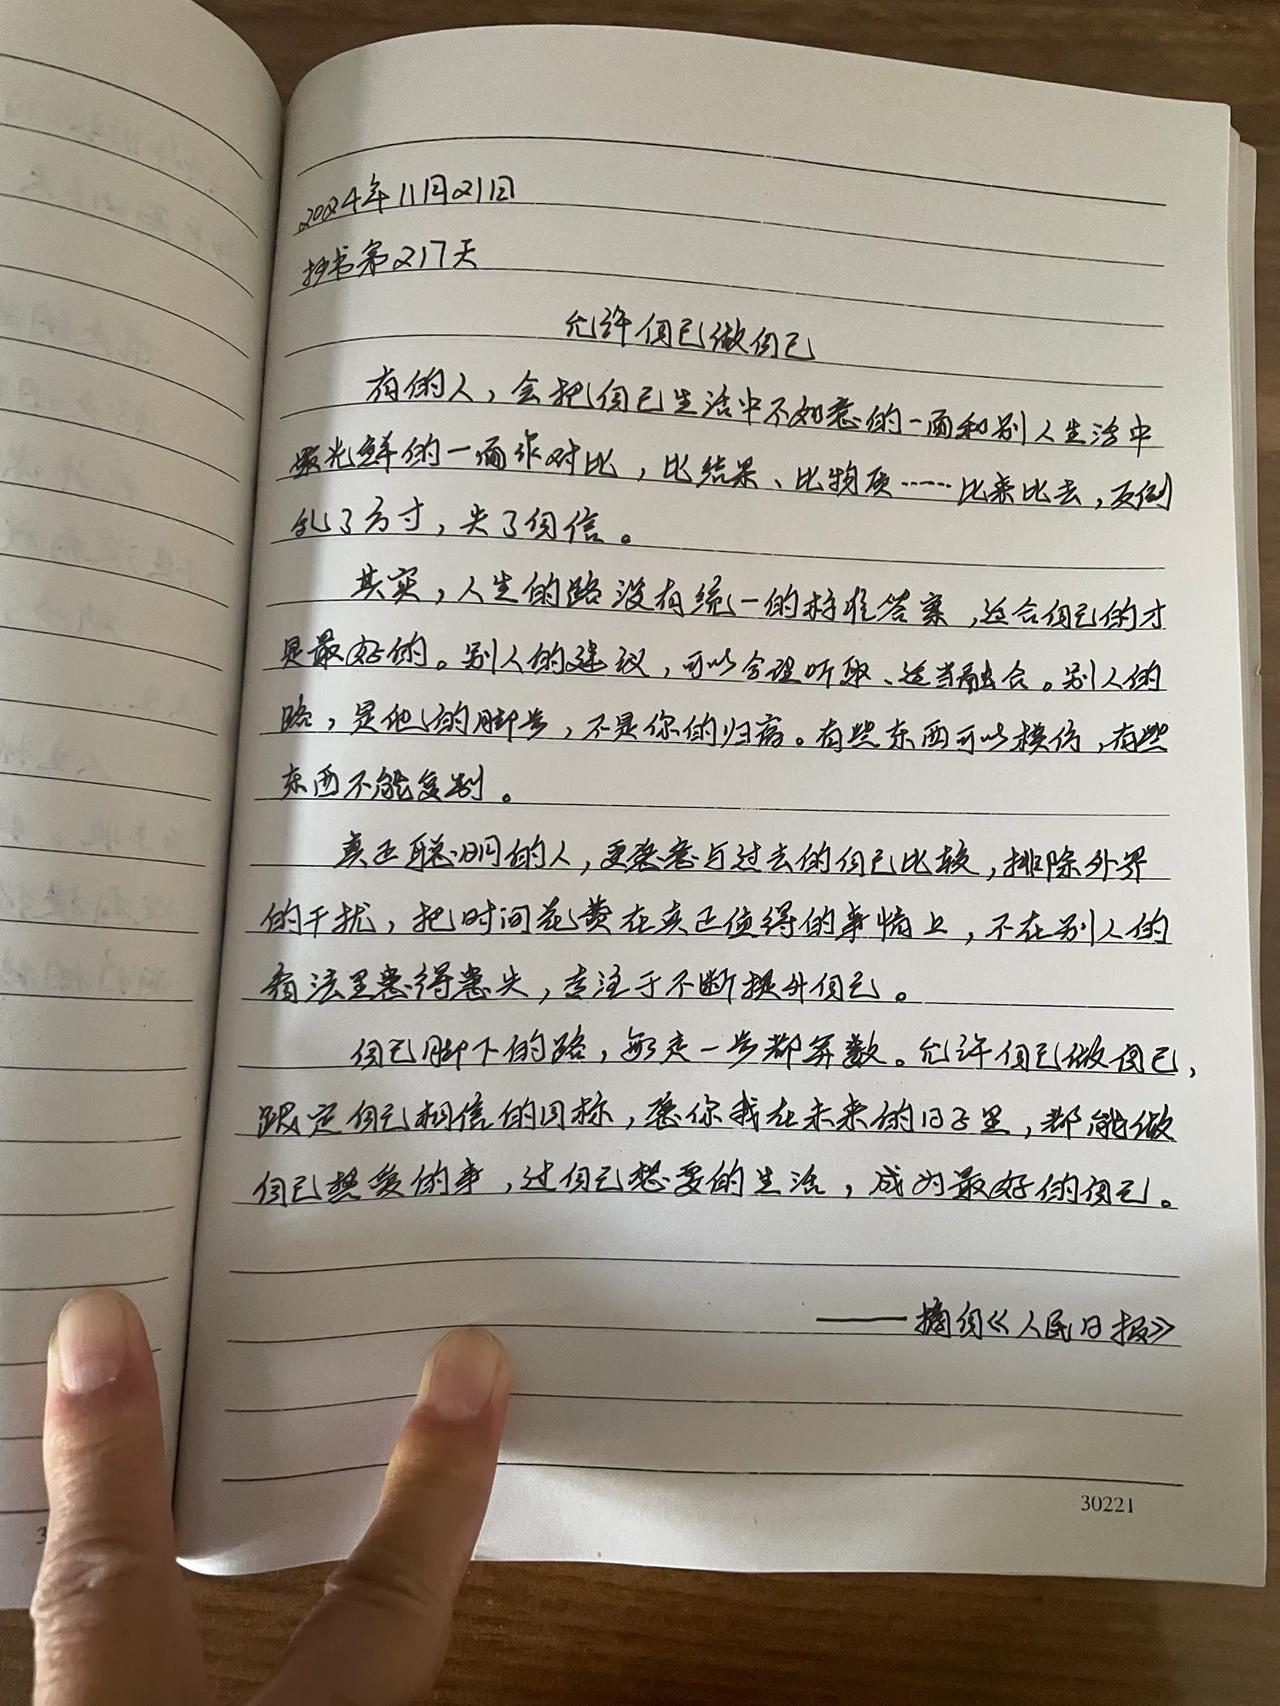 2024年11月21日
抄书第217天
允许自己做自己
有的人，会把自己生活中不如意的一面和别人生活中
最光鲜的一面作对比，比结果、比物质……比来比去，反倒
乱了方寸，失了自信。
其实，人生的路没有统一的标准答案，适合自己的才
是最好的。别人的建议，可以合理听取、适当融合。别人的
路，是他们的脚步，不是你的归宿。有些东西可以模仿，有些
东西不能复制。
真正聪明的人，更愿意与过去的自己比较，排除外界
的干扰，把时间花费在真正值得的事情上，不在别人的
看法里患得患失，专注于不断提升自己。
自己脚下的路，每走一步都算数。允许自己做自己，
跟定自己相信的目标，愿你我在未来的日子里，都能做
自己热爱的事，过自己想要的生活，成为最好的自己。
——摘自《人民日报》
30221